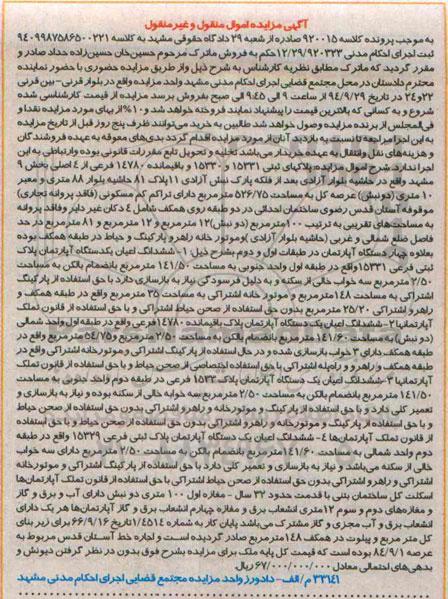 آگهی مزایده اموال منقول و غیرمنقول
به موجب پرونده کلاسه ۹۲۰۰۱۵ صادره از شعبه ۲۹ دادگاه حقوقی مشهد به کلاسه ۹۴۰۹۹۸۷۵۸۶۵۰۰۲۲۱
ثبت اجرای احکام مدنی ۱۲/۲۹/۹۲۰۳۳۳ حکم به فروش ماترک مرحوم حسین‌خان حسین‌زاده حداد صادر و
مقرر گردید که ماترک مطابق نظریه کارشناس به شرح ذیل و از طریق مزایده حضوری با حضور نماینده
محترم دادستان در محل مجتمع قضایی اجرای احکام مدنی مشهد واحد مزایده واقع در بلوار قرنی - بین قرنی
۲۲و۲۴ در تاریخ ۹۴/۹/۲۹ از ساعت ۹ الی ۹:۴۵ صبح بفروش برسد مزایده از قیمت کارشناسی
شروع و به کسانی که بالاترین قیمت را پیشنهاد نمایند فروخته خواهد شد و ۱۰% از بهای مورد مزایده نقدا و
فی‌المجلس از برنده مزایده وصول خواهد شد طالبین به خرید می‌توانند ظرف پنج روز قبل از تاریخ مزایده
به این اجرا مراجعه تا نسبت به بازدید آنان از مورد مزایده اقدام گردد بدی‌های معوقه به عهده فروشندگان
و هزینه‌های نقل وانتقال به عهده خریدار می‌باشد تخلیه و تحویل تابع مقررات قانونی بوده وارتباطی به این
اجرا ندارد. شرح اموال مورد مزایده: پلاکهای ثبتی ۱۵۳۳۱ و ۱۵۳۳۰ و باقیمانده ۱۴۷۸۰ فرعی از ۴ اصلی بخش ۹
مشهد واقع در حاشیه بلوار آزادی بعد از فلکه پارک نبش آزادی ۱۱ پلاک ۸۱ حاشیه بلوار ۸۸ متری و معبر
۱۰ متری (دونبش) عرصه کل به مساحت ۵۲۶/۷۵ مترمربع دارای تراکم کم مسکونی (فاقد پروانه تجاری)
موقوفه آستان قدس رضوی ساختمان احداثی در دو طبقه روی همکف شامل ۴ دکان غیر دایر و فاقد پروانه
به مساحت‌های تقریبی به ترتیب ۱۰۰ مترمربع (دو نبش) ۱۲ مترمربع و ۱۲ مترمربع و ۸۱ مترمربع در حد
فاصل ضلع شمالی و غربی (حاشیه بلوار آزادی) و موتور خانه راهرو پارکینگ و حیاط در طبقه همکف بوده
بعلاوه چهار دستگاه آپارتمان در طبقات اول و دوم بشرح ذیل ۱- ششدانگ اعیان یکدستگاه آپارتمان پلاک
ثبتی فرعی ۱۵۳۳۱ واقع در طبقه اول واحد جنوبی به مساحت ۱۴۱/۵۰ مترمربع بانضمام بالکن به مساحت
۲/۵۰ مترمربع سه خواب خالی از سکنه و به دلیل فرسودگی نیاز به بازسازی دارد با حق استفاده از پارکینگ
اشتراکی به مساحت ۱۴۸ مترمربع و موتور خانه اشتراکی به مساحت ۳۵ مترمربع واقع در طبقه همکف و
راهرو اشتراکی ۲۵/۲۰ مترمربع بدون حق استفاده از صحن حیاط اشتراکی و با حق استفاده از قانون تملک
آپارتمانها ۲- ششدانگ اعیان یک دستگاه آپارتمان پلاک باقیمانده ۱۴۷۸۰ فرعی واقع در طبقه اول واحد شمالی
(دو نبش) به مساحت ۱۴۱/۶۰ مترمربع بانضمام بالکن به مساحت ۲/۵۰ مترمربع و ۵۴/۷۵ مترمربع واقع در
طبقه همکف دارای ۳ خواب بازسازی شده و در حال استفاده از پارکینگ اشتراکی و موتورخانه اشتراکی واقع در
طبقه همکف و راهرو و راه‌پله اشتراکی با حق استفاده اختصاصی از صحن حیاط و با حق استفاده از قانون تملک
آپارتمانها ۳- ششدانگ اعیان یک دستگاه آپارتمان پلاک ۱۵۳۳ فرعی در طبقه دوم واحد جنوبی به مساحت
۱۴۱/۵۰ مترمربع بانضمام بالکن به مساحت ۲/۵۰ مترمربع سه خوابه خالی از سکنه بوده و نیاز به بازسازی و
تعمیر کلی دارد و با حق استفاده از پارکینگ و موتورخانه و راهرو اشتراکی بدون حق استفاده از صحن حیاط
و با حق استفاده از پارکینگ و موتورخانه و راهرو اشتراکی بدون حق استفاده از صحن حیاط و با حق استفاده
از قانون تملک آپارتمان‌ها ۴- ششدانگ اعیان یک دستگاه آپارتمان پلاک ثبتی فرعی ۱۵۳۲۹ واقع در طبقه
دوم واحد شمالی به مساحت ۱۴۱/۶۰ مترمربع بانضمام بالکن به مساحت ۲/۵۰ مترمربع دارای سه خواب
خالی از سکنه می‌باشد و نیاز به بازسازی و تعمیر کلی دارد با حق استفاده از پارکینگ اشتراکی و موتورخانه
اشتراکی و راهرو اشتراکی بدون حق استفاده از صحن حیاط اشتراکی با حق استفاده از قانون تملک آپارتمان‌ها
اسکلت کل ساختمان بتنی با قدمت حدود ۳۲ سال - مغازه اول ۱۰۰ متری دو نبش دارای آب و برق و گاز
و مغازه‌های دوم و سوم ۱۲ متری انشعاب برق و مغازه چهارم انشعاب برق و گاز آپارتمان‌ها هر یک دارای
انشعاب برق و آب مجزی و گاز مشترک می‌باشد پایان کار به شماره ۱/۴۵۱۴ تاریخ ۶۶/۹/۱۶ برای زیر بنای
کل متر مربع و پیلوت در همکف ۱۴۸ مترمربع صادر گردیده است و اجاره خط آستان قدس مربوط به
عرصه ۸۴/۹/۱ بوده است که قیمت کل پایه ملک برای مزایده بشرح فوق بدون در نظر گرفتن دیونش و
بدهی‌های احتمالی معادل ۶۷/۰۰۰/۰۰۰/۰۰۰ ریال
۳۳۱۴۱ م/الف- دادورز واحد مزایده مجتمع قضایی اجرای احکام مدنی مشهد